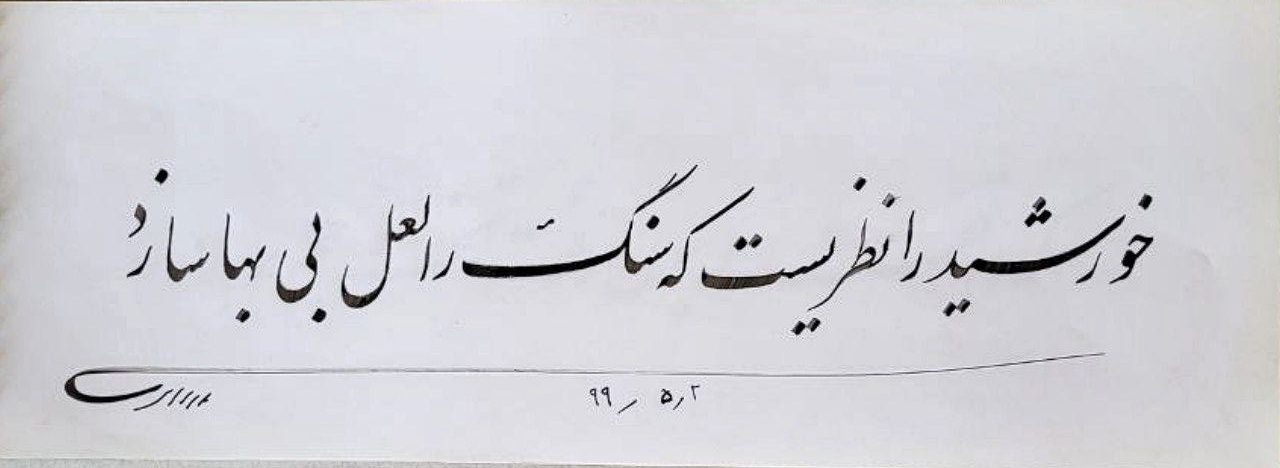 خورشید را نظریست که سنگ را لعل بی بها سازد
۹۹ / ۵٫۲